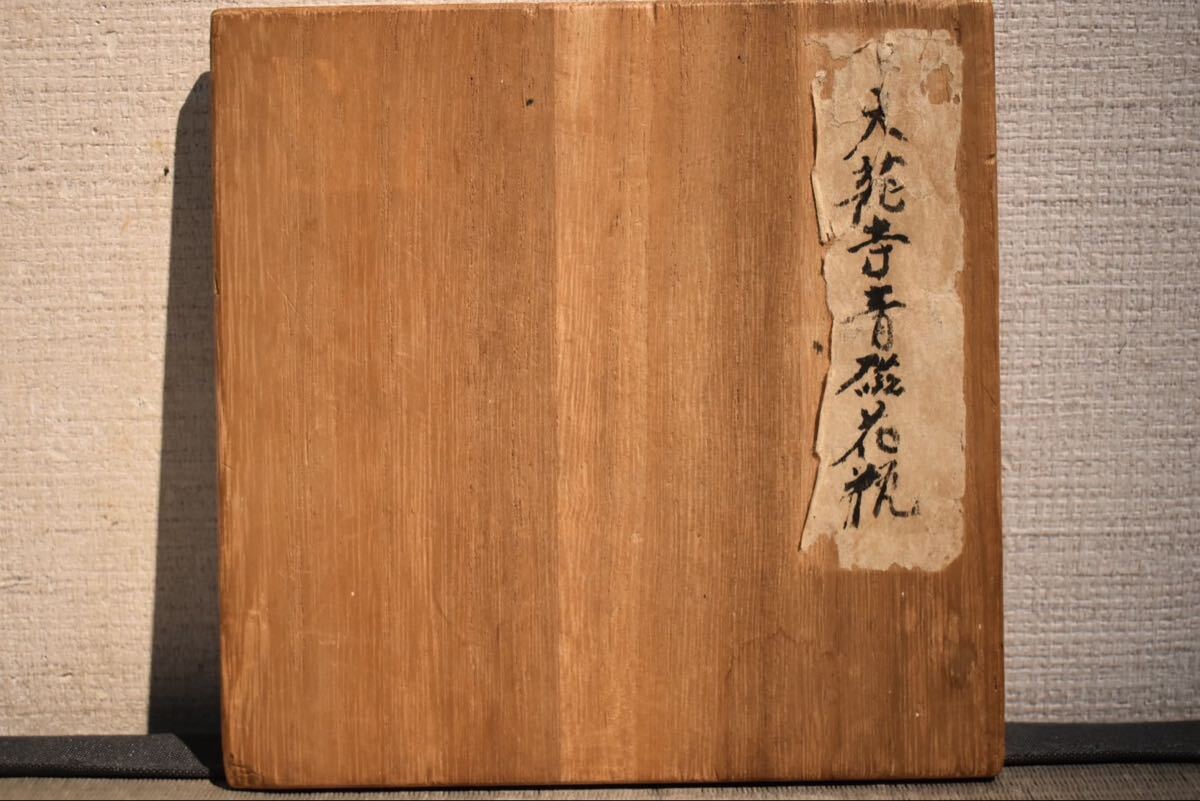 天龍寺青磁花瓶